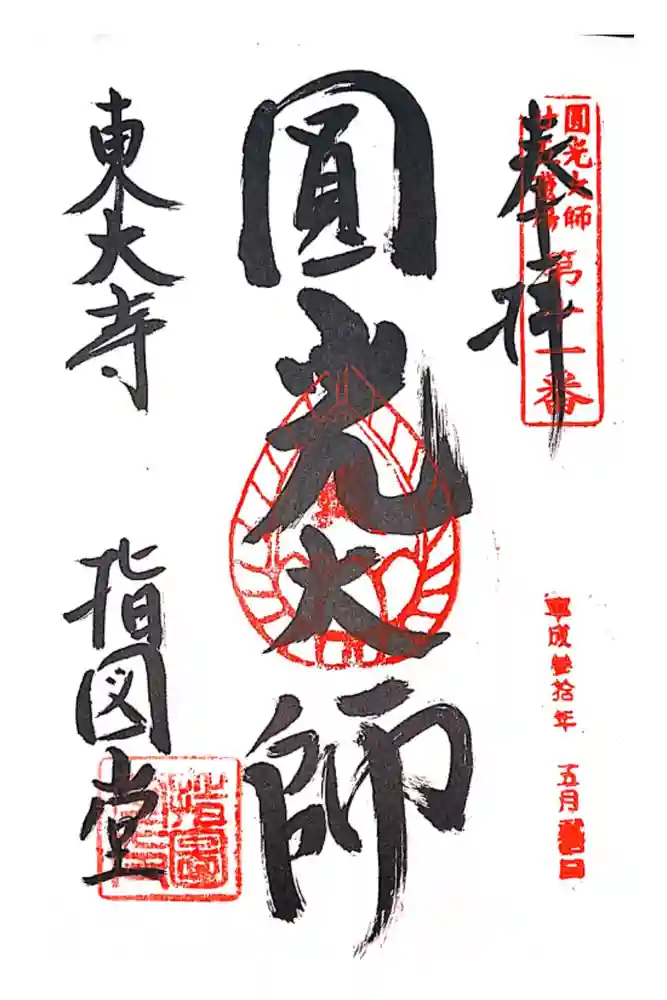 奉拝
圓光大師
廿五霊場
第十一番
平成参拾年 五月
圓光大師
東大寺
指図堂
指圖堂